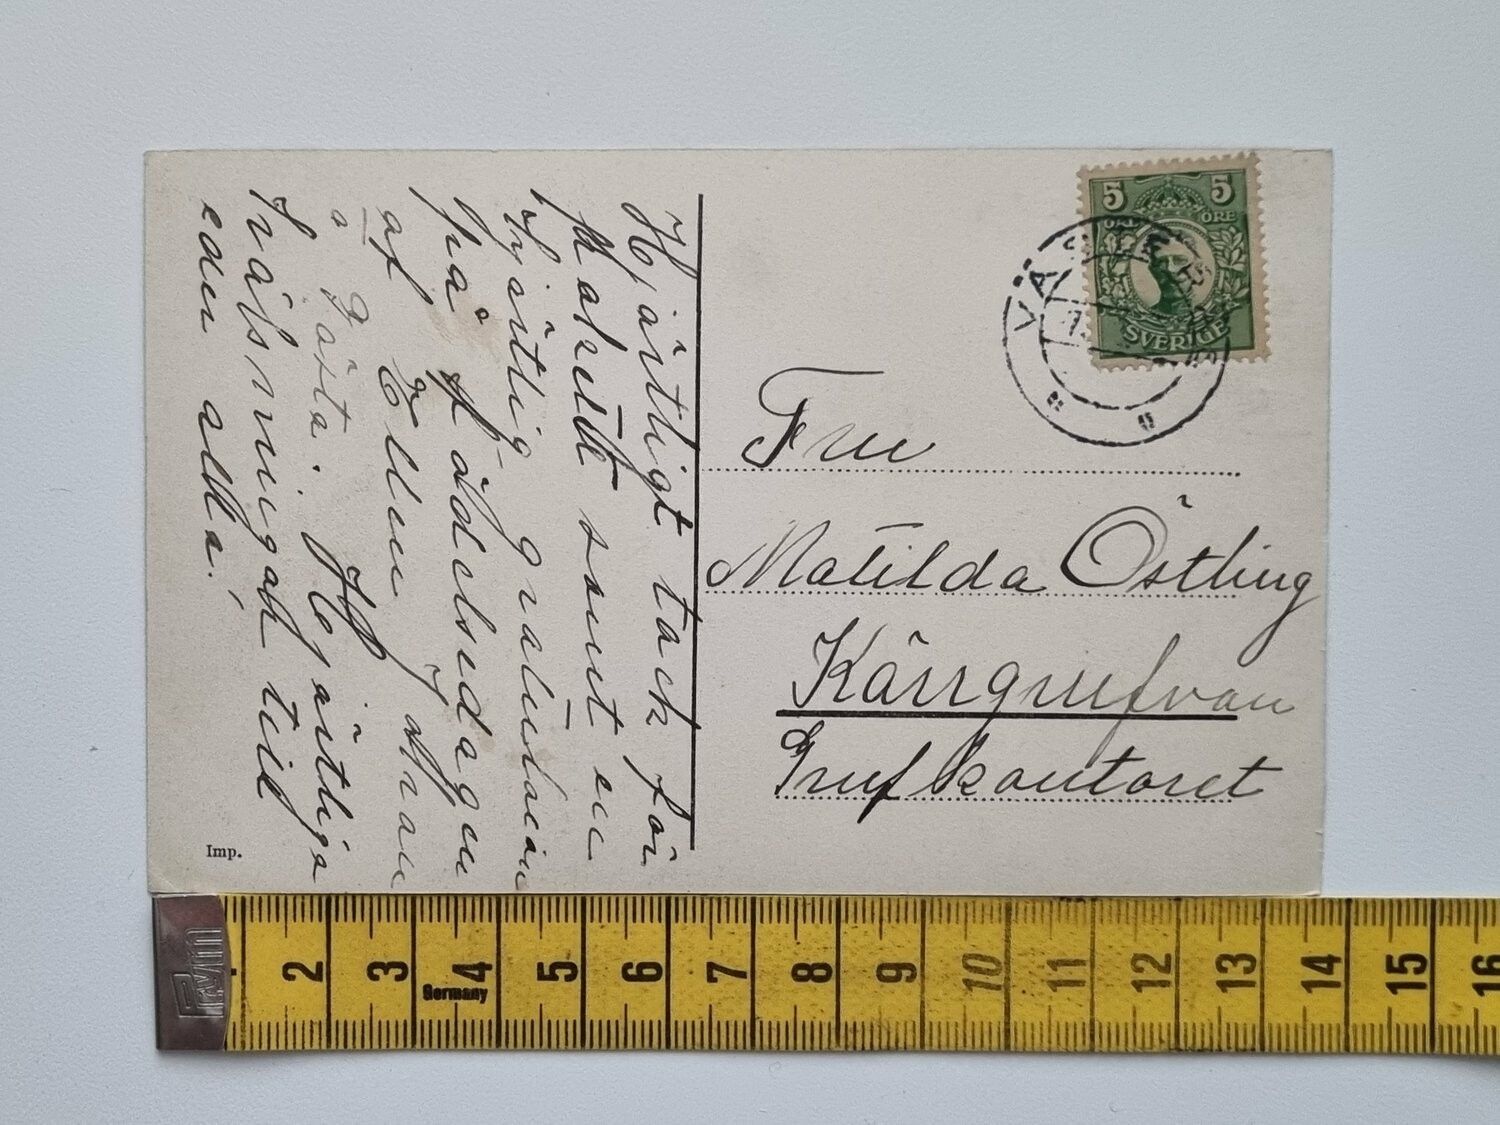 Hjärtligt tack för
paketet samt en
hjärtlig gratulation
på födelsedagen
af Ellen från
Gösta. Hjärtliga
hälsningar till
eder alla!
Imp.
5 5
ÖRE ÖRE
SVERIGE
Fru
Matilda Östling
Kärrgrufvan
Grufkontoret
2 3 4 5 6 7 8 9 10 11 12 13 14 15 16
Germany